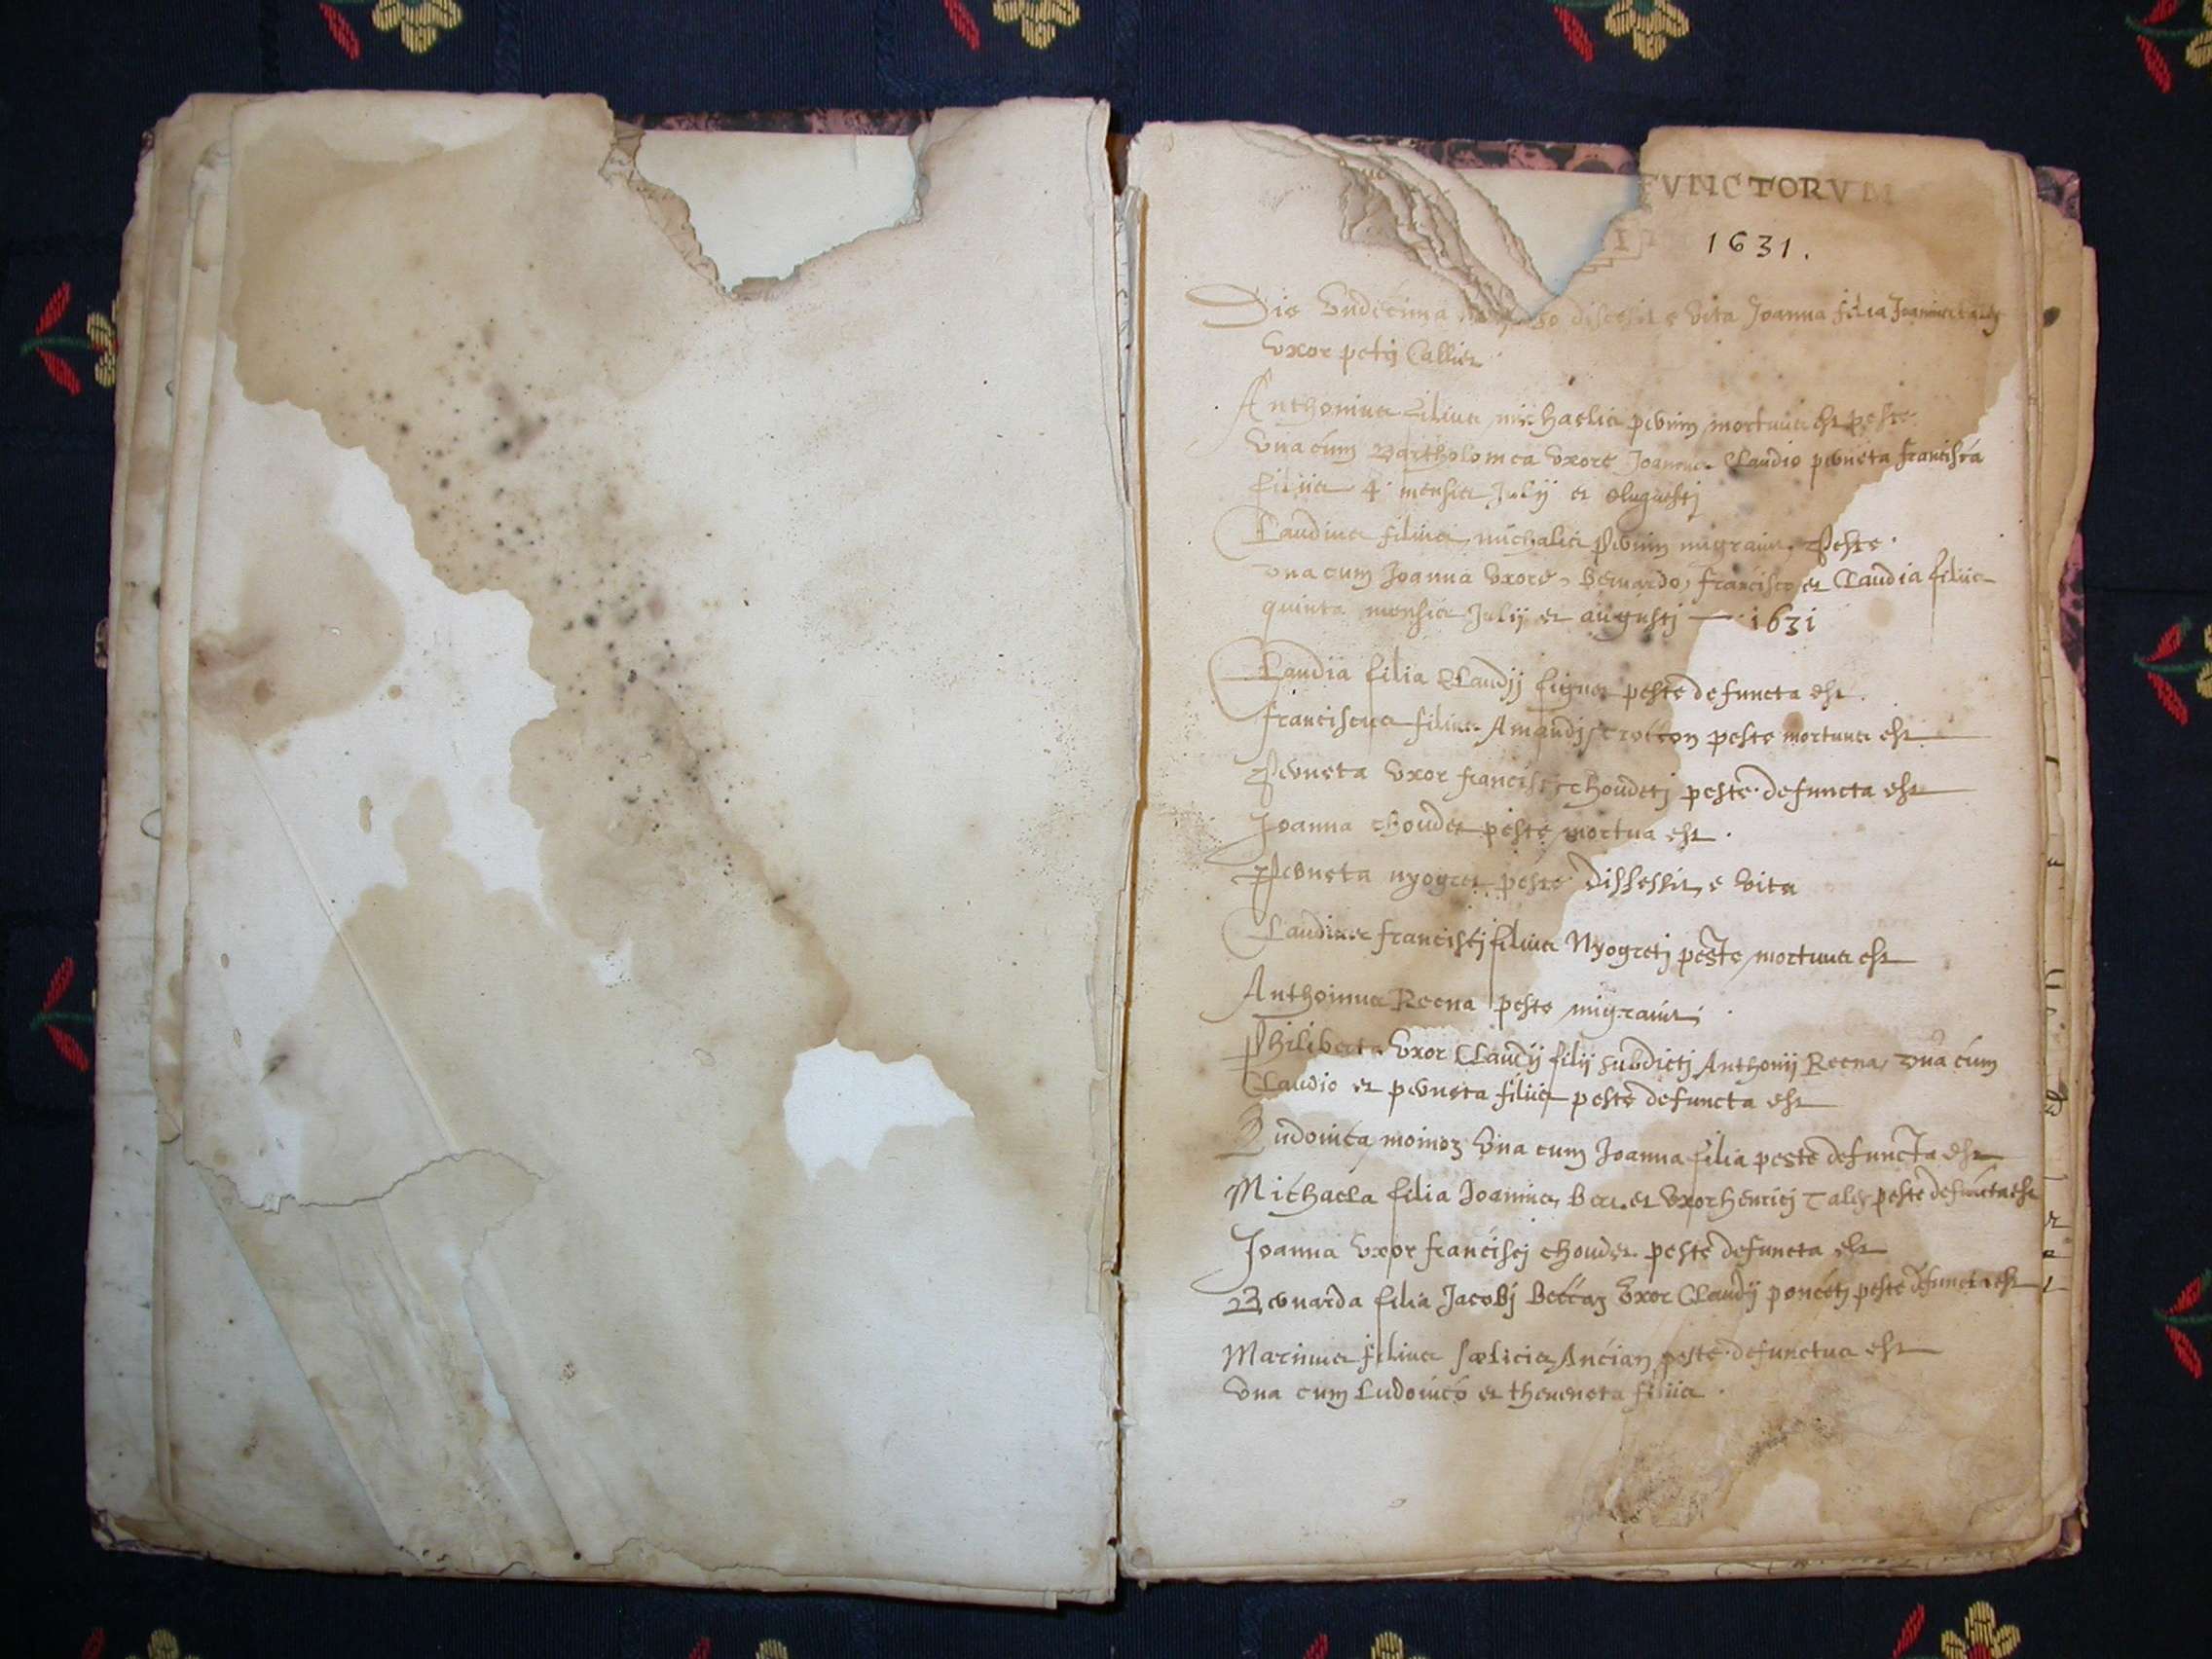 FVNCTORVM
1631.
Die Vndecima discessit e vita Joanna filia
Vxor petrj Callier
Anthonius filius michaelis pernin mortuus est peste
Vna cum Bartholomea vxore Joanne Claudio perneta francisca
filiis 4 mensis Julij et Augustj
Claudius filius michalis Pernin migravit Peste
vna cum Joanna vxore, bernardo, francisco et Claudia filiis
quinta mensis Julij et augustj — 1631
Claudia filia Claudij peste defuncta est.
franciscus filius Amandj peste mortuus est
Perneta vxor francisci choudetj peste defuncta est
Joanna choudet peste mortua est.
Perneta nyogret peste dissessit e vita
Claudius franciscj filius Nyogretj peste mortuus est
Anthonius Reena peste migravit
Philiberta Vxor Claudij filij subdictj Anthonij Reena, vna cum
Claudio et perneta filiis peste defuncta est
Ludovica moinoz Vna cum Joanna filia peste defuncta est
Michaela filia Joannis et vxor henricj peste defuncta est
Joanna vxor franciscj choudet peste defuncta est
Bernarda filia Jacobj beccaz Vxor Claudij poncetj peste defuncta est
Marinus filius fœlicis Ancian peste defunctus est
Vna cum Ludovico et theveneta filiis.